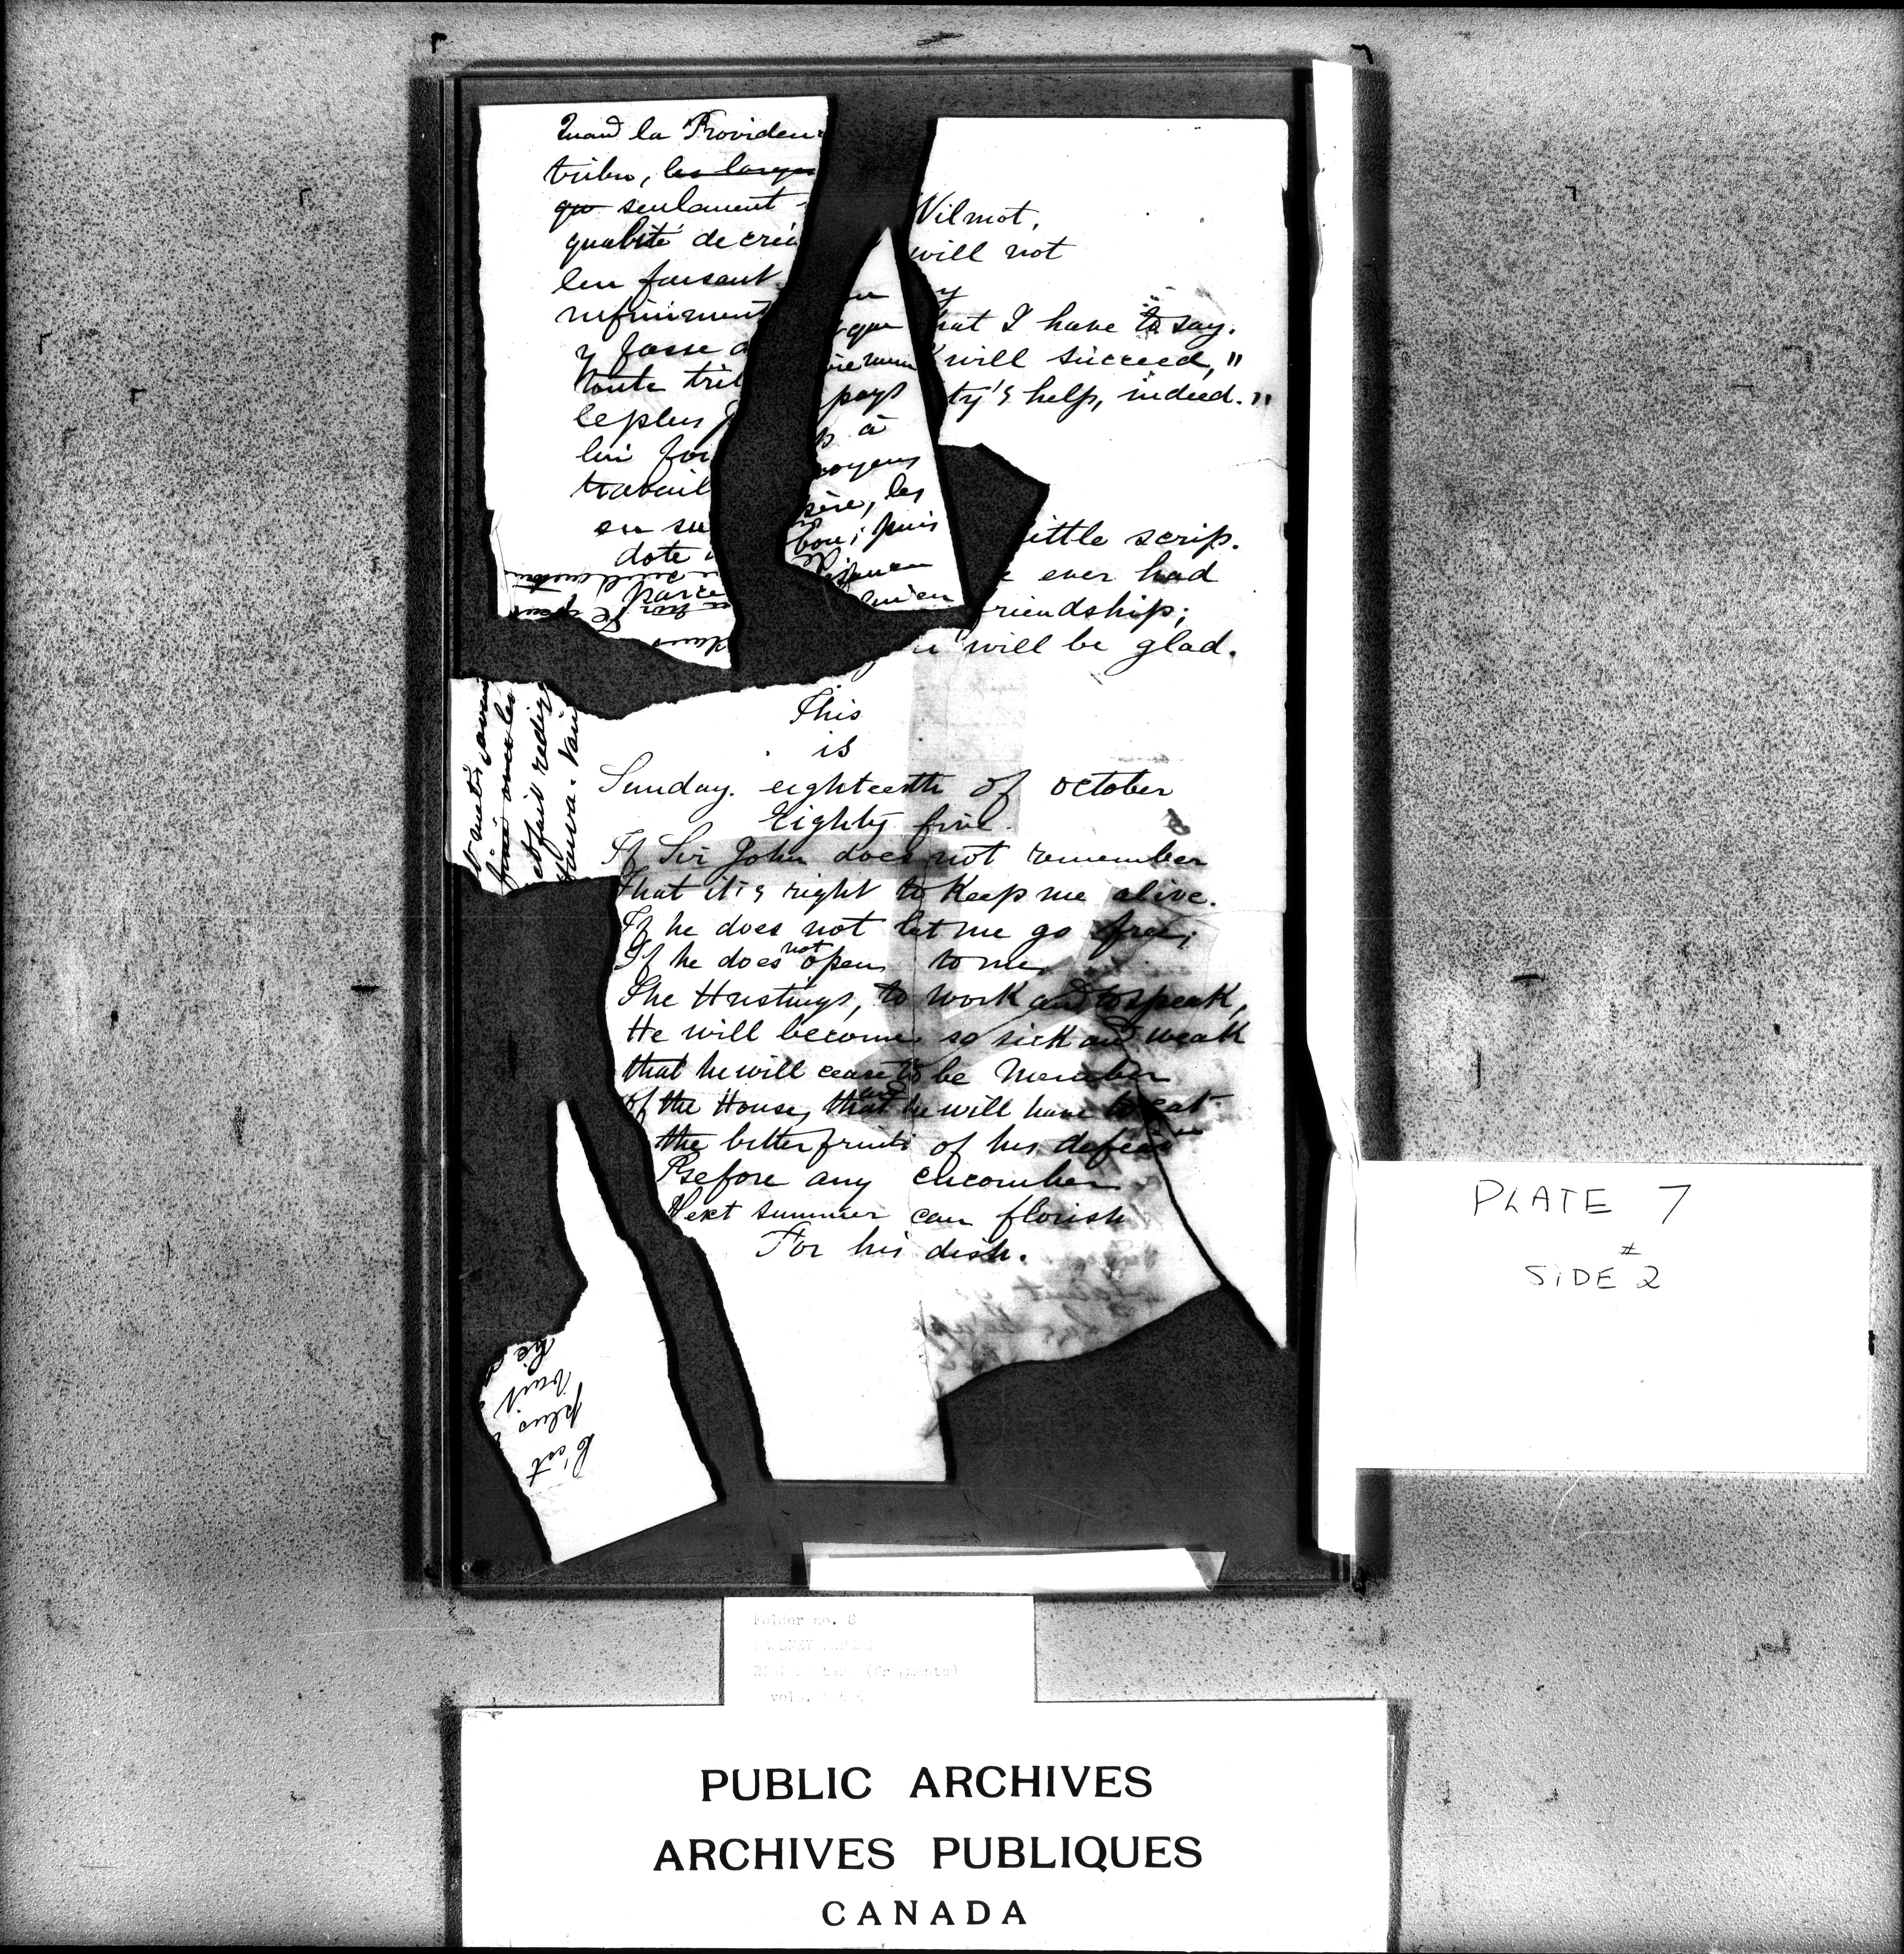 Quand la Providen
tribu, les larges
qu seulement
qualité de créa
leu faisant
infiniment
y fasse
toute trib
le plus
lui foi
travail
en su
dote
parce
que
pays
à
moyens
les
bon; puis
Wilmot,
will not
y
hat I have to say.
will succeed,"
ty's help, indeed."
ittle scrip.
ever had
riendship;
will be glad.
This
is
Sunday. eighteenth of october
Eighty five.
If Sir John does not remember
That it is right to Keep me alive.
If he does not let me go free;
If he does not open to me
The Hustings, to work and to speak,
He will become so sick and weak
that he will cease to be Member
of the House, and that he will have to eat
the bitter fruits of his defeat
Before any cucumber
Next summer can florish
For his dish.
et fait rédig
C'est
plus
PLATE 7
SIDE #2
Folder no. 8
PUBLIC ARCHIVES
ARCHIVES PUBLIQUES
CANADA